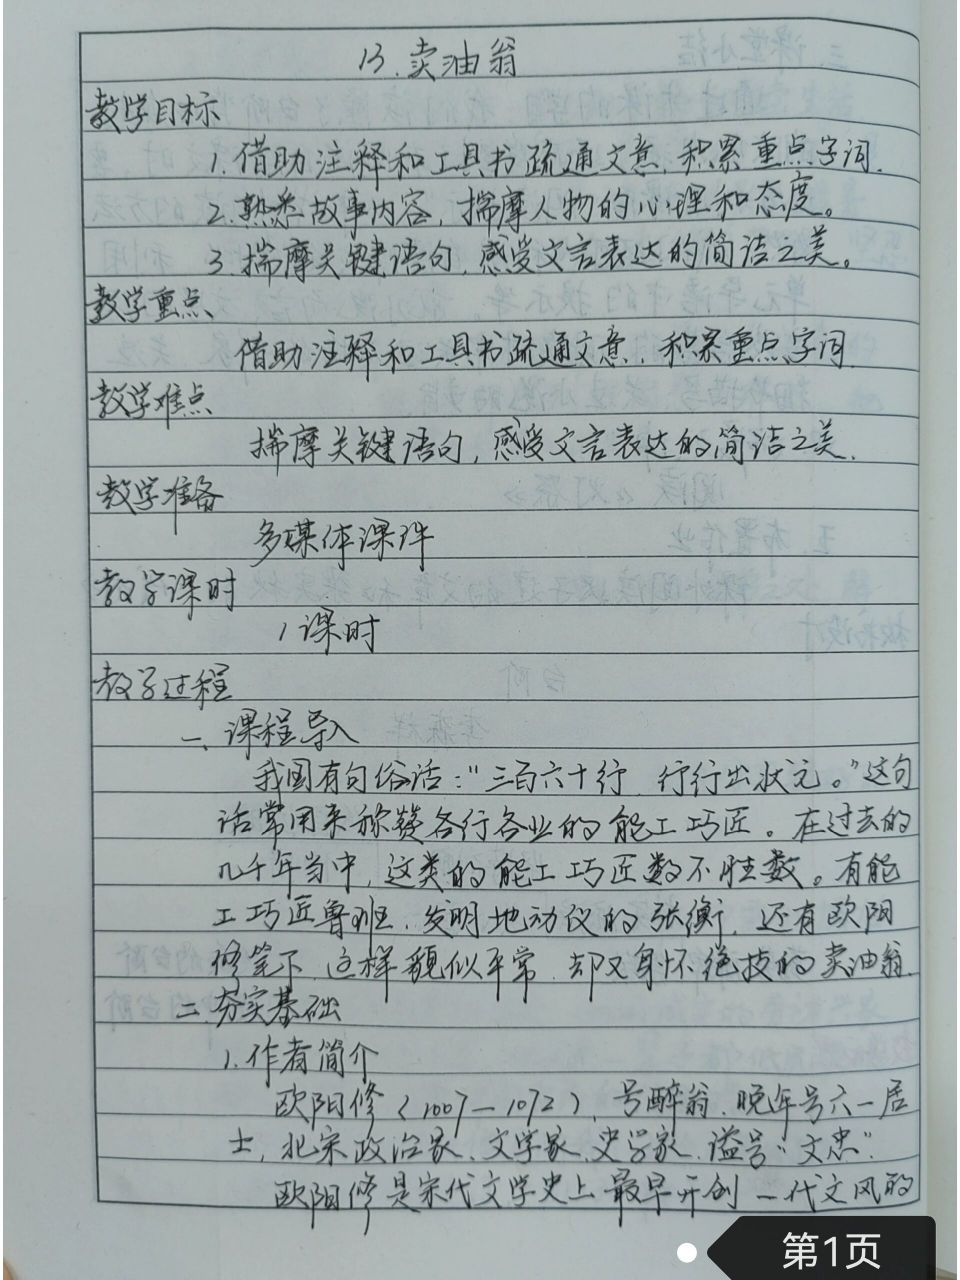 13.卖油翁
教学目标
1.借助注释和工具书疏通文意,积累重点字词.
2.熟悉故事内容,揣摩人物的心理和态度。
3.揣摩关键语句,感受文言表达的简洁之美。
教学重点
借助注释和工具书疏通文意,积累重点字词.
教学难点
揣摩关键语句,感受文言表达的简洁之美.
教学准备
多媒体课件
教学课时
1课时
教学过程
一、课程导入
我国有句俗话:“三百六十行,行行出状元。”这句
话常用来称赞各行各业的能工巧匠。在过去的
几千年当中,这类的能工巧匠数不胜数。有能
工巧匠鲁班,发明地动仪的张衡,还有欧阳
修笔下,这样貌似平常,却又身怀绝技的卖油翁.
二、夯实基础
1.作者简介
欧阳修(1007—1072),号醉翁,晚年号六一居
士,北宋政治家、文学家、史学家,谥号“文忠”.
欧阳修是宋代文学史上最早开创一代文风的
第1页